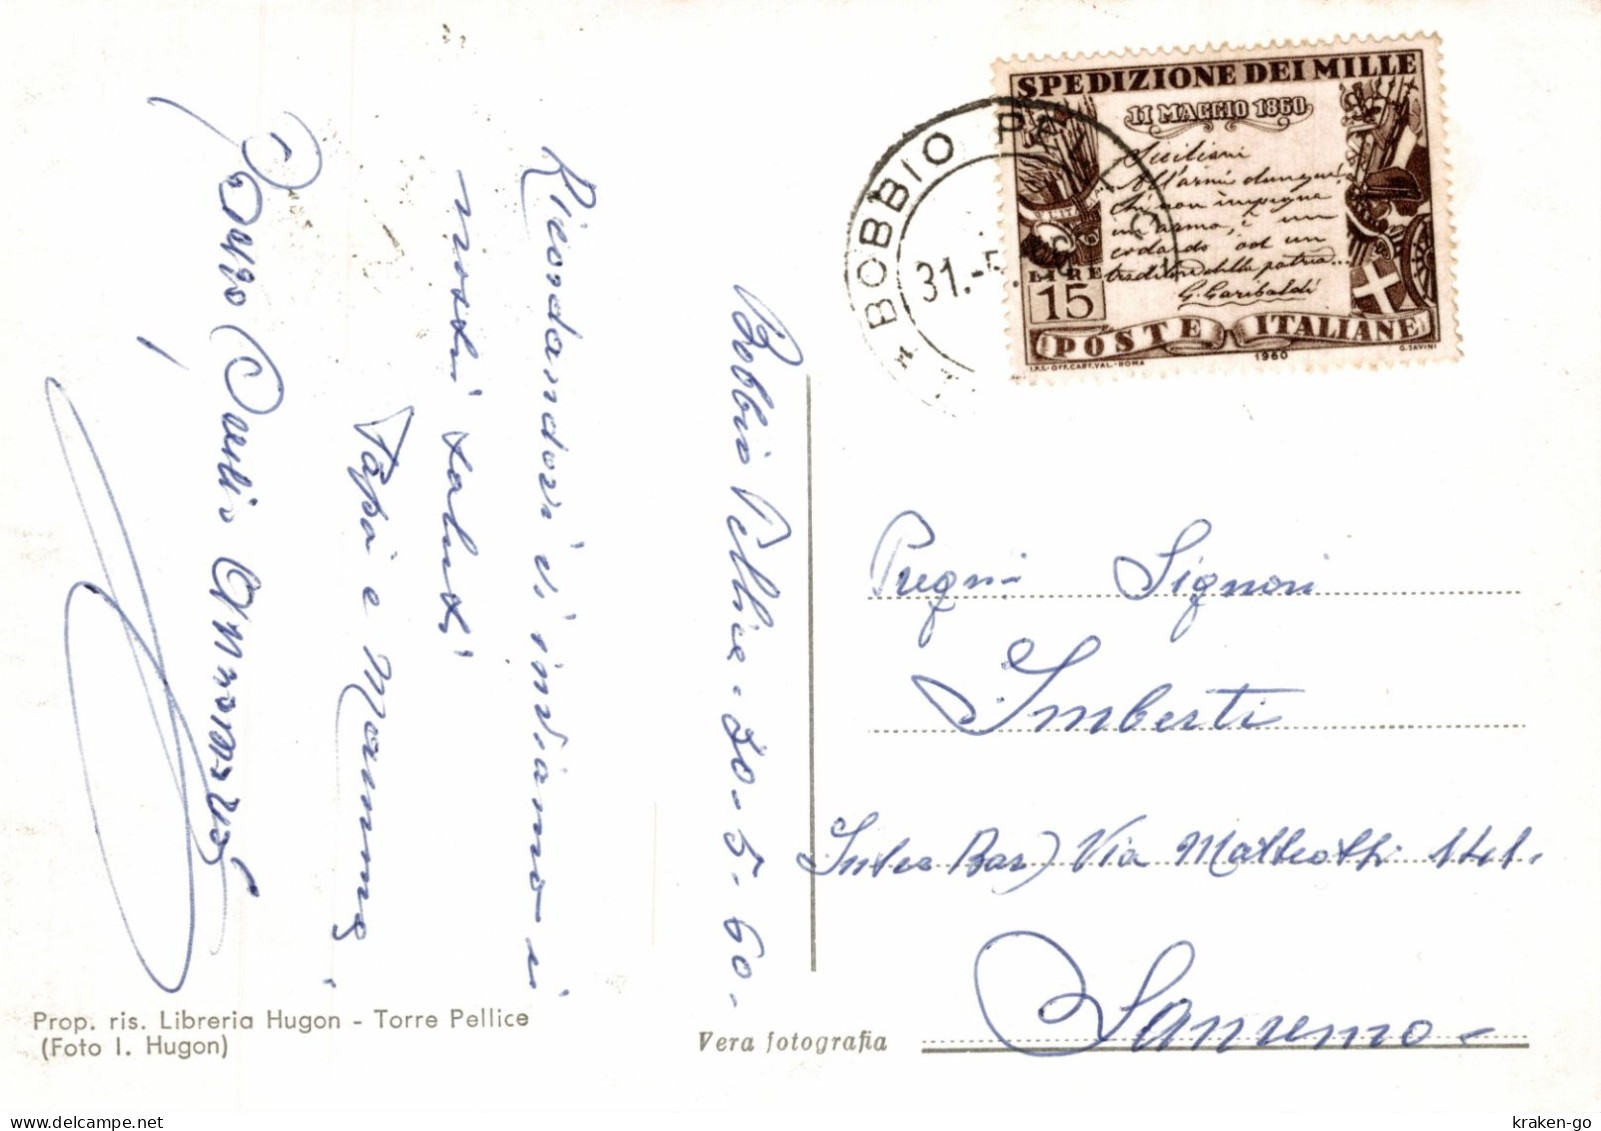 Bobbio Pellice. 30-5-60.
Ricordandovi vi inviamo i
nostri saluti
Papà e Mamma
Prop. ris. Libreria Hugon - Torre Pellice
(Foto I. Hugon)
Vera fotografia
BOBBIO PELLICE
31.-5
SPEDIZIONE DEI MILLE
11 MAGGIO 1860
Siciliani
All'armi dunque!
Chi non impugna
un'arma, è un
codardo od un
traditore della patria...
G. Garibaldi
LIRE
15
POSTE ITALIANE
I.P.S.-OFF.CART.VAL.-ROMA
1960
G. SAVINI
Pregni Signori
Imberti
(Inter Bar) Via Matteotti 141.
Sanremo-
kraken-go